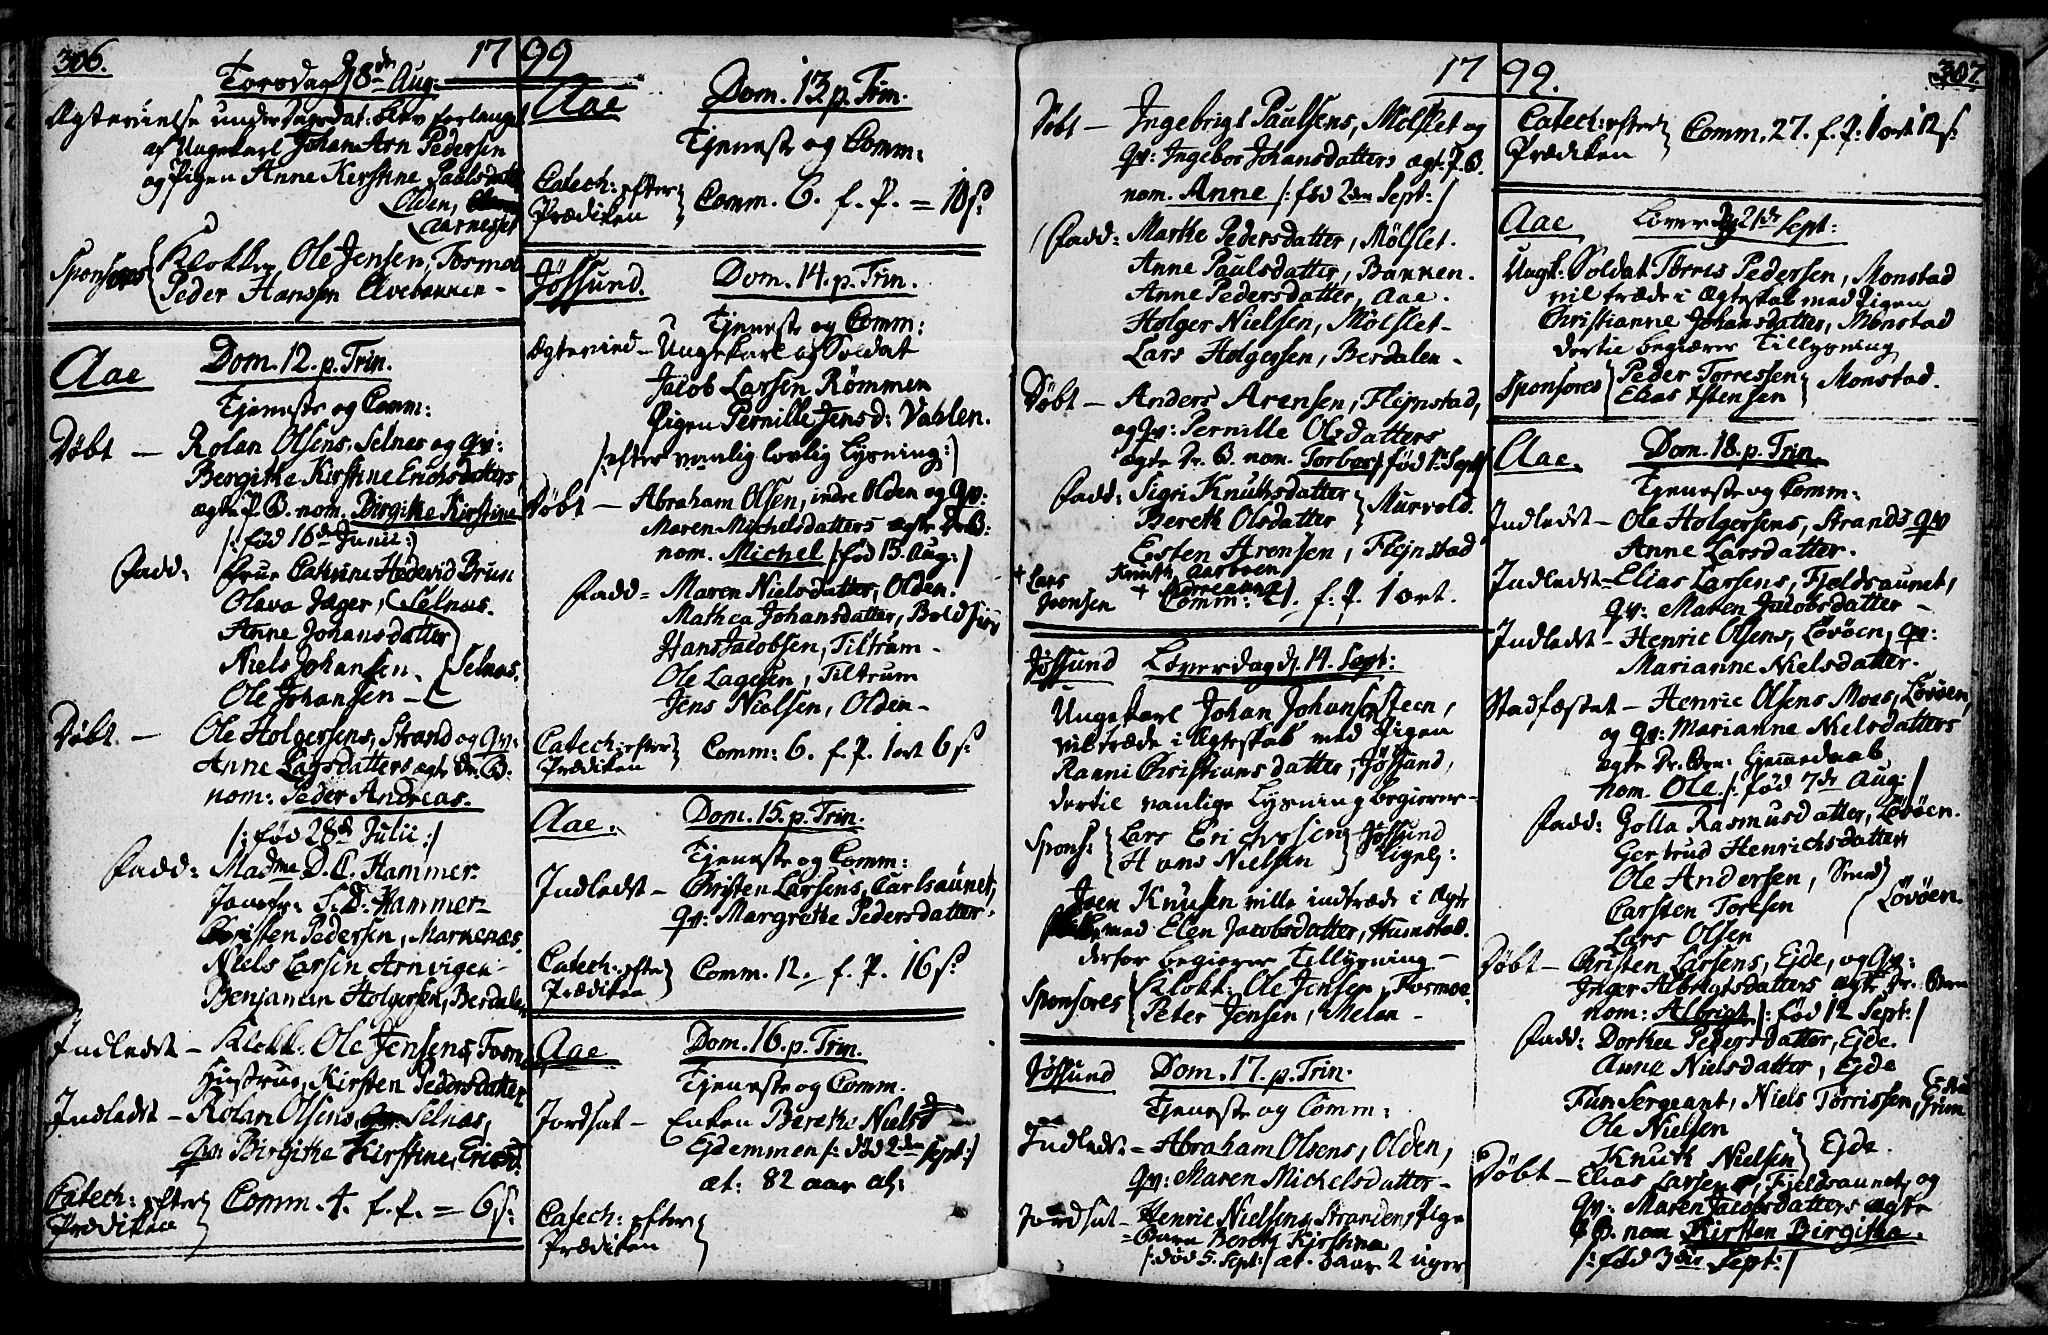 306.
1799
Torsdag d 8de Aug:
Ægtevielse under Dags dat: blev forlanget
af Ungekarl Johan Arn Pedersen
og Pigen Anne Kirstine Paulsdatter
Olden,
Aarnesset
Sponsores Klokker Ole Jensen, Fosmoe
Peder Hansen Elvebakken -
Aae Dom. 12. p. Trin.
Tjeneste og Comm:
Døbt — Rolan Olsens, Selnes og qv:
Bergithe Kirstine Erichsdatters
ægte P. B. nom. Birgithe Kirstine
/: fød 16de Junii :/
Fadd: Frue Catrine Hedevid Brun
Olava Jæger, Selnæs.
Anne Johansdatter
Niels Johansen. Selnæs.
Ole Johansen —
Døbt. — Ole Holgersens, Strand og qv:
Anne Larsdatters ægte Dr. B:
nom: Peder Andreas.
/: fød 28de Julii :/
Fadd: Madme D. C. Hammer
Jomfr: S. D. Hammer
Christen Pedersen, Marknæs
Niels Larsen Arnvigen -
Benjamin Holgersen, Berdalen
Indledt — Klokk: Ole Jensens Fosmo
Hustrue, Kirsten Pedersdatter
Indledt — Rolan Olsens, Selnæs,
qv: Birgithe Kirstine, Ericsd.
Catech: efter Prædiken } Comm. 4. f. P. = 6 s:
Aae Dom. 13 p. Trin.
Tjeneste og Comm:
Catech: efter Prædiken } Comm. 6. f. P. = 10 s:
Jøssund. Dom. 14. p. Trin.
Tjeneste og Comm:
Ægtevied — Ungekarl og Soldat
Jacob Larsen Rømmen
Pigen Pernille Jensd: Vahlen.
/: efter vanlig lovlig Lysning :/
Døbt — Abraham Olsen, indre Olden og qv:
Maren Michelsdatters ægte Dr. B:
nom. Michel /: fød 15. Aug: /
Fadd = Maren Nielsdatter, Olden.
Mathea Johansdatter, Boldsiin
Hans Jacobsen, Tiltrum -
Ole Lagesen, Tiltrum
Jens Nielsen, Olden -
Catech: efter Prædiken } Comm: 6. f. P. 1 ort 6 s:
Aae. Dom. 15. p. Trin.
Tjeneste og Comm:
Indledt — Christen Larsens, Carlsaunet,
qv: Margrethe Pedersdatter.
Catech: efter Prædiken } Comm. 12. f. P. 16 s:
Aae Dom. 16. p. Trin.
Tjeneste og Comm.
Jordsat — Enken Berethe Nielsd
Ejdemmen /: død 2den Sept: /
æt: 82 aar al:
Catech: efter
Prædiken
1799.
307.
Døbt — Ingebrigt Paulsens, Mølslet og
qv: Ingebor Johansdatters ægt: P. B.
nom. Anne /: fød 2den Sept: /
Fadd: Marthe Pedersdatter, Mølslet.
Anne Paulsdatter, Bakken.
Anne Pedersdatter, Aae.
Holger Nielsen, Mølslet -
Lars Holgersen, Berdalen -
Døbt — Anders Arensen, Flejnstad,
og qv: Pernille Olsdatters
ægte Dr. B. nom. Torber /: fød 1. Sept /
Fadd: Sigri Knuthsdatter
Bereth Olsdatter } Murvold.
Esten Arensen, Flejnstad
+ Lars Joensen Knuth Aarsoen
+ Comm: 21. f. P. 1 ort.
Jøssund Løverdag d. 14. Sept:
Ungekarl Johan Johansen Steen,
vil træde i Ægteskab med Pigen
Ranni Christiansdatter, Jøssund,
dertil vanlige Lysning begierer -
Spons: Lars Erichsen Jøssund
Hans Nielsen ligel:
Joen Knusen ville indtræde i Ægte
med Elen Jacobsdatter, Humstad.
derfor begierer Tillysning —
Sponsores Klokk: Ole Jensen, Fosmoe.
Peter Jensen, Melan -
Jøssund Dom. 17. p. Trin.
Tjeneste og Comm:
Indledt - Abraham Olsens, Olden,
qv: Maren Michelsdatter -
Jordsat - Henric Nielsens, Stranden, Pige
= Barn Bereth Kirstina
/: død 5. Sept: / æt. 3 aar 2 uger
Catech: efter Prædiken } Comm. 27. f. P: 1 ort 12 s:
Aae Løverdag 21de Sept:
Ungk: Soldat Tørris Pedersen, Monstad
vil træde i Ægteskab med Pigen
Christianne Johansdatter, Monstad
dertil begiærer Tillysning
Sponsores Peder Torressen
Elias Estensen } Monstad.
Aae. Dom. 18. p. Trin.
Tjeneste og Comm:
Indledt — Ole Holgersens, Strands qv
Anne Larsdatter.
Indledt — Elias Larsens, Fjeldsaunet,
qv: Maren Jacobsdatter —
Indledt — Henric Olsens, Løvøen, qv:
Marianne Nielsdatter.
Stadfæstet — Henric Olsens Moes, Løvøen,
og qv: Marianne Nielsdatters
ægte Dr. Brn: hjemmedøab
nom. Ole /: fød 7de Aug: /
Fadd: Golla Rasmusdatter, Løvøen.
Gertrud Henrichsdatter
Ole Andersen, Smed
Carsten Toresen Løvøen.
Lars Olsen
Døbt — Christen Larsens, Ejde, og qv:
Inger Albrigtsdatters ægte Dr. Barn
nom: Albrigt /: fød 12 Sept: /
Fadd: Dorthea Pedersdatter, Ejde.
Anne Nielsdatter, Ejde
Fun Sergeant, Niels Torrissen,
Ole Nielsen
Knuth Nielsen } Ejde.
Døbt — Elias Larsens, Fjeldsaunet, og
qv: Maren Jacobsdatters ægte
P. B. nom Kirsten Birgitha.
/: fød 3die Sept: /